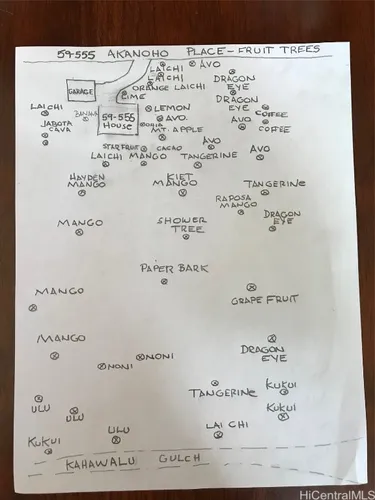 59-555 AKANOHO PLACE - FRUIT TREES
LAICHI
AVO
LAICHI
DRAGON
EYE
ORANGE LAICHI
GARAGE
LIME
DRAGON
EYE
LAICHI
BANANA
59-555
HOUSE
LEMON
COFFEE
JABOTA
CAVA
AVO.
AVO
COFFEE
OHIA
MT. APPLE
STARFRUIT
CACAO
AVO
AVO
LAICHI
MANGO
TANGERINE
HAYDEN
MANGO
KIET
MANGO
TANGERINE
RAPOSA
MANGO
MANGO
SHOWER
TREE
DRAGON
EYE
PAPER BARK
MANGO
GRAPE FRUIT
MANGO
NONI
NONI
DRAGON
EYE
TANGERINE
KUKUI
ULU
ULU
KUKUI
KUKUI
ULU
LAI CHI
KAHAWALU GULCH
HiCentralMLS